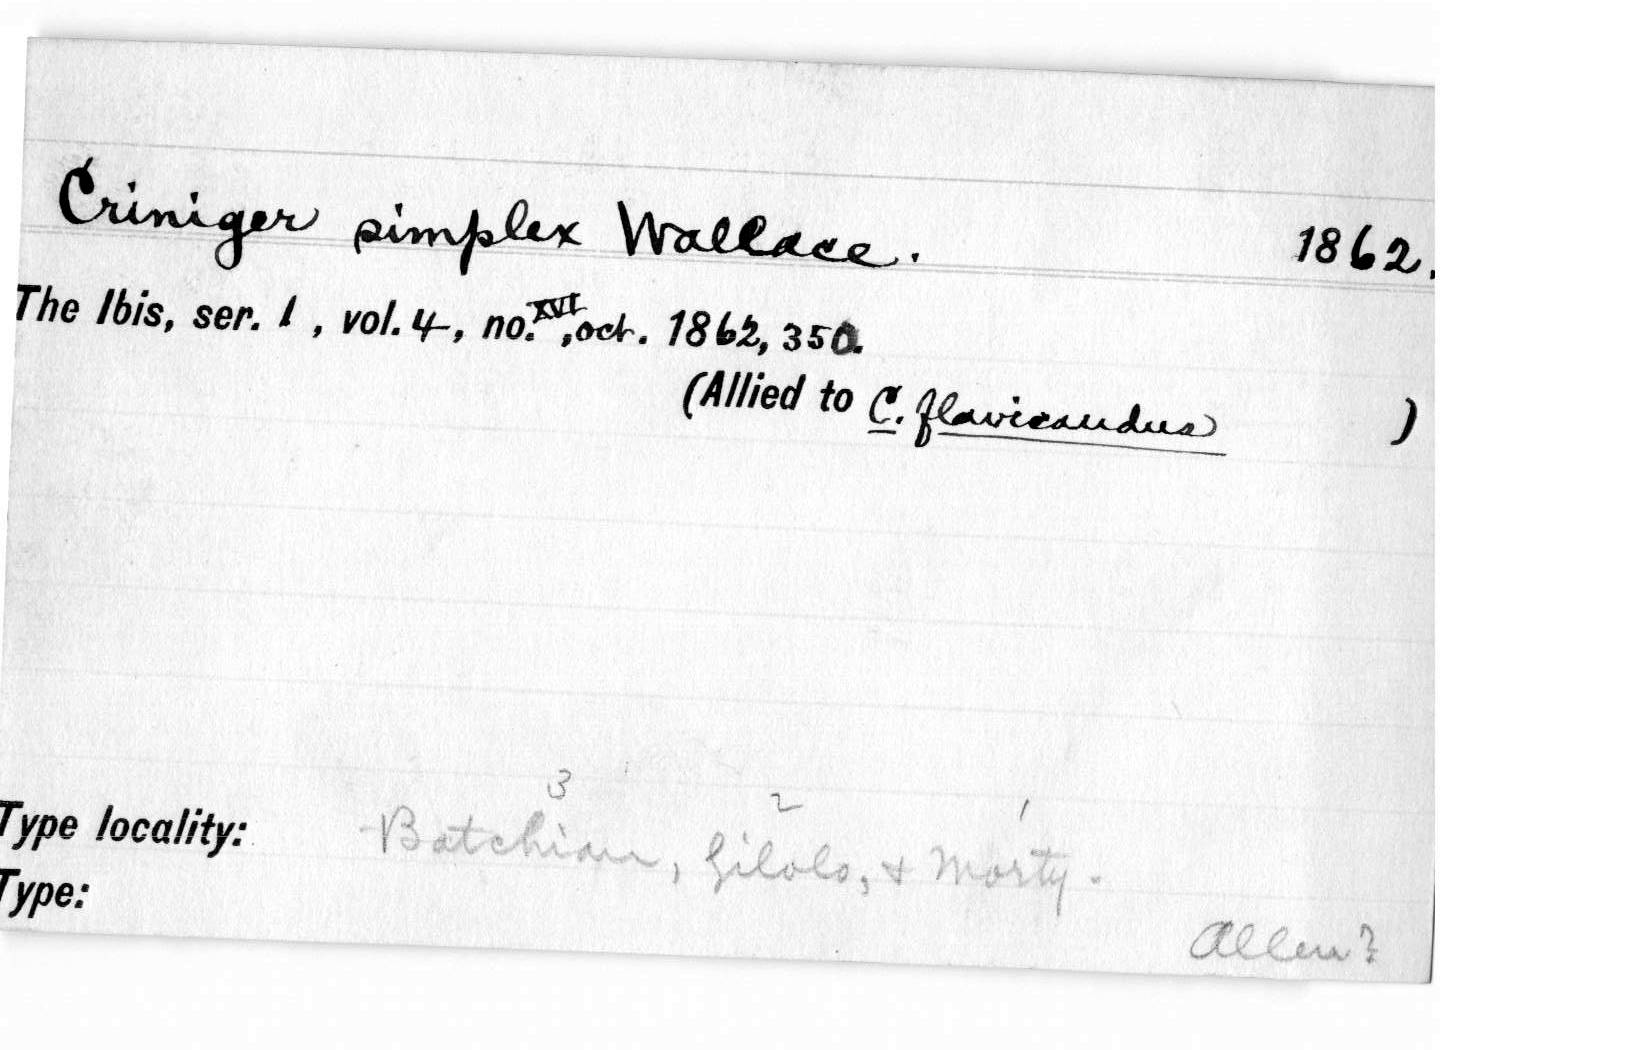 Criniger simplex Wallace. 1862.
The Ibis, ser. 1, vol. 4, no. XVI, oct. 1862, 350.
(Allied to C. flavicaudus )
3 2 1
Type locality: Batchian, Gilolo, & Morty.
Type:
Allen?